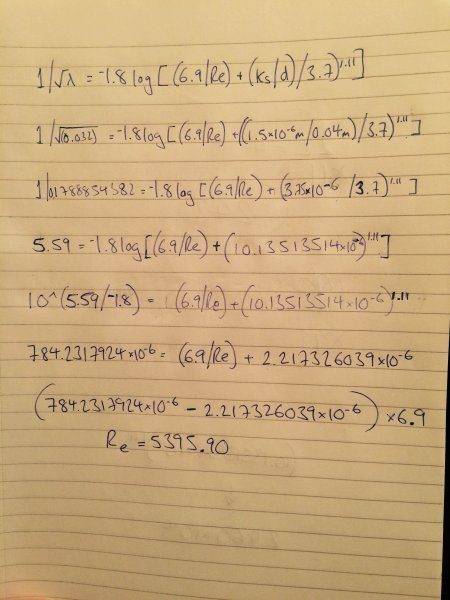 1/√λ = -1.8 log [(6.9/Re) + (Ks/d)/3.7)^1.11]
1/√(0.032) = -1.8 log [(6.9/Re) + ((1.5×10^-6 m/0.04m)/3.7)^1.11]
1/0.1788854382 = -1.8 log [(6.9/Re) + (3.75×10^-6 /3.7)^1.11]
5.59 = -1.8 log [(6.9/Re) + (10.13513514×10^-6)^1.11]
10^(5.59/-1.8) = (6.9/Re) + (10.13513514×10^-6)^1.11
784.2317924×10^-6 = (6.9/Re) + 2.217326039×10^-6
(784.2317924×10^-6 - 2.217326039×10^-6) × 6.9
Re = 5395.90